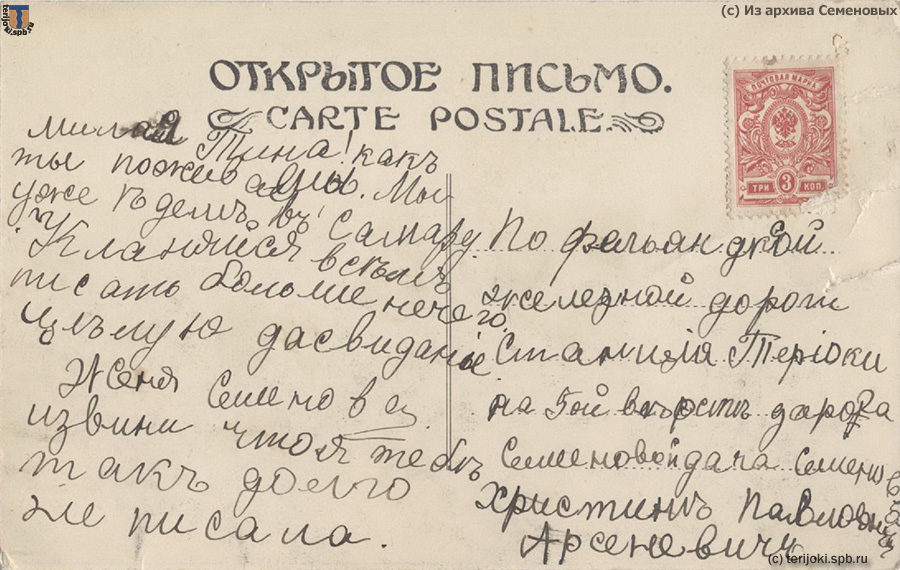 terijoki.spb.ru
(c) Из архива Семеновых
ОТКРЫТОЕ ПИСЬМО.
CARTE POSTALE.
ПОЧТОВАЯ МАРКА
ТРИ 3 КОП
милая Тина! какъ
ты поживаешь. Мы
уже ѣдемъ въ Самару.
Кланяйся всѣмъ
писать больше нечего
цѣлую дасвиданіе
Женя Семенова
извини что я тебѣ
такъ долго
не писала.
По фельандской
железной дороги
Станція Теріоки
на 5ой вѣрстѣ дарога
Семеновой дача Семеновыхъ
Христинѣ Павловнѣ
Арсеневичъ
(c) terijoki.spb.ru